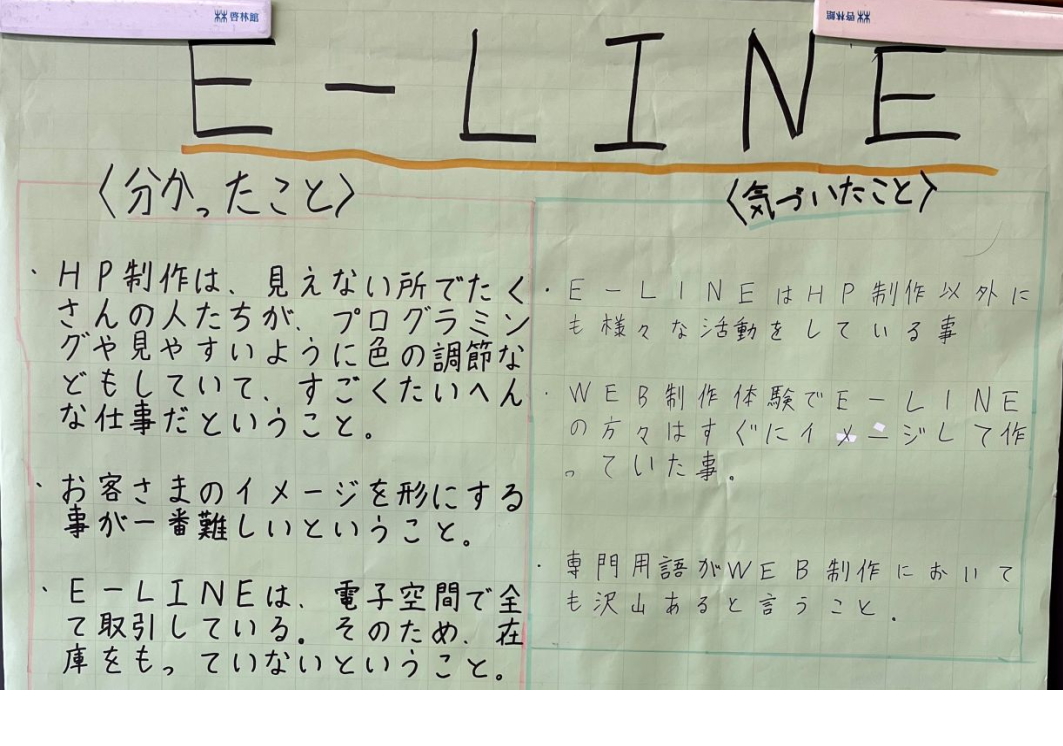 啓林館
啓林館
E-LINE
〈分かったこと〉
・HP制作は、見えない所でたく
さんの人たちが、プログラミン
グや見やすいように色の調節な
どもしていて、すごくたいへん
な仕事だということ。
・お客さまのイメージを形にする
事が一番難しいということ。
・E-LINEは、電子空間で全
て取引している。そのため、在
庫をもっていないということ。
〈気づいたこと〉
・E-LINEはHP制作以外に
も様々な活動をしている事
・WEB制作体験でE-LINE
の方々はすぐにイメージして作
っていた事。
・専門用語がWEB制作において
も沢山あると言うこと.